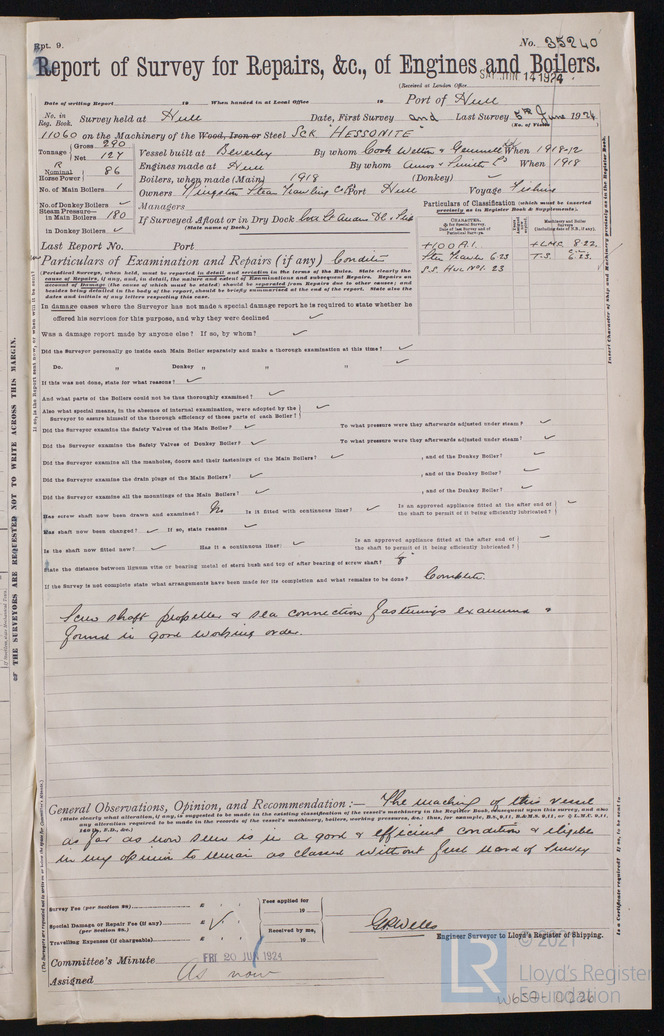 Rpt. 9.
No. 35240
Report of Survey for Repairs, &c., of Engines and Boilers.
(Received at London Office SAT. JUN 14 1924
Date of writing Report 19 When handed in at Local Office 19 Port of Hull
No. in Reg. Book. Survey held at Hull Date, First Survey and Last Survey 5th June 1924
(No. of Visits)
11060 on the Machinery of the Wood, Iron or Steel Sck "HESSONITE"
Tonnage Gross 290
Net 127
Vessel built at Beverley By whom Cook Welton & Gemmell Ld When 1918-12
Engines made at Hull By whom Amos & Smith Ld When 1918
Nominal Horse Power 86
Boilers, when made (Main) 1918 (Donkey)
No. of Main Boilers 1
Owners Kingston Steam Trawling Co Ld Port Hull Voyage Fishing
No. of Donkey Boilers
Managers
Steam Pressure— in Main Boilers 180
in Donkey Boilers
If Surveyed Afloat or in Dry Dock
(State name of Dock.)
Particulars of Classification (which must be inserted precisely as in Register Book & Supplements).
CHARACTER.
Machinery and Boiler Surveys
+100 A.1. + L.M.C. 8.22.
Stm Trawler 6.23 T.S. 6.23.
S.S. Hul No1. 23
Last Report No. Port
Particulars of Examination and Repairs (if any) Condition
(Periodical Surveys, when held, must be reported in detail and seriatim in the terms of the Rules. State clearly the cause of Repairs, if any, and, in detail, the nature and extent of Examinations and subsequent Repairs. Repairs on account of Damage (the cause of which must be stated) should be separated from Repairs due to other causes; and besides being detailed in the body of the report, should be briefly summarised at the end of the report. State also the dates and initials of any letters respecting this case.
In damage cases where the Surveyor has not made a special damage report he is required to state whether he
offered his services for this purpose, and why they were declined
Was a damage report made by anyone else? If so, by whom?
Did the Surveyor personally go inside each Main Boiler separately and make a thorough examination at this time?
Do. „ Donkey „ „ „
If this was not done, state for what reasons?
And what parts of the Boilers could not be thus thoroughly examined?
Also what special means, in the absence of internal examination, were adopted by the
Surveyor to assure himself of the thorough efficiency of those parts of each Boiler?
Did the Surveyor examine the Safety Valves of the Main Boiler? To what pressure were they afterwards adjusted under steam?
Did the Surveyor examine the Safety Valves of Donkey Boiler? To what pressure were they afterwards adjusted under steam?
Did the Surveyor examine all the manholes, doors and their fastenings of the Main Boilers? , and of the Donkey Boiler?
Did the Surveyor examine the drain plugs of the Main Boilers? , and of the Donkey Boiler?
Did the Surveyor examine all the mountings of the Main Boilers? , and of the Donkey Boiler?
Has screw shaft now been drawn and examined? No Is it fitted with continous liner? Is an approved appliance fitted at the after end of the shaft to permit of it being efficiently lubricated?
Has shaft now been changed? If so, state reasons
Is the shaft now fitted new? Has it a continuous liner? Is an approved appliance fitted at the after end of the shaft to permit of it being efficiently lubricated?
State the distance between lignum vitæ or bearing metal of stern bush and top of after bearing of screw shaft?
If the Survey is not complete state what arrangements have been made for its completion and what remains to be done? Complete.
Screw shaft propeller & sea connection fastenings examined &
found in good working order.
General Observations, Opinion, and Recommendation:— The machiny of this vessel
(State clearly what alteration, if any, is suggested to be made in the existing classification of the vessel's machinery in the Register Book, consequent upon this survey, and also any alteration required to be made in the records of the vessel's machinery, boilers, working pressures, &c.: thus, for example, B.S. 9,11, B.&M.S. 9,11, or L.M.C. 9,11, 140 lb., F.D., &c.)
as far as now seen is in a good & efficient condition & eligible
in my opinion to remain as classed without fresh record of survey
Survey Fee (per Section 28) £ : :
Special Damage or Repair Fee (if any) £ : :
(per Section 28.)
Travelling Expenses (if chargeable) £ : :
Fees applied for
19
Received by me,
19
GRWells
Engineer Surveyor to Lloyd's Register of Shipping.
Committee's Minute FRI 20 JUN 1924
Assigned As now
OF THE SURVEYORS ARE REQUESTED NOT TO WRITE ACROSS THIS MARGIN.
Insert Character of Ship and Machinery precisely as in the Register Book.
© 2021
LR
Lloyd's Register
Foundation
W659-0226